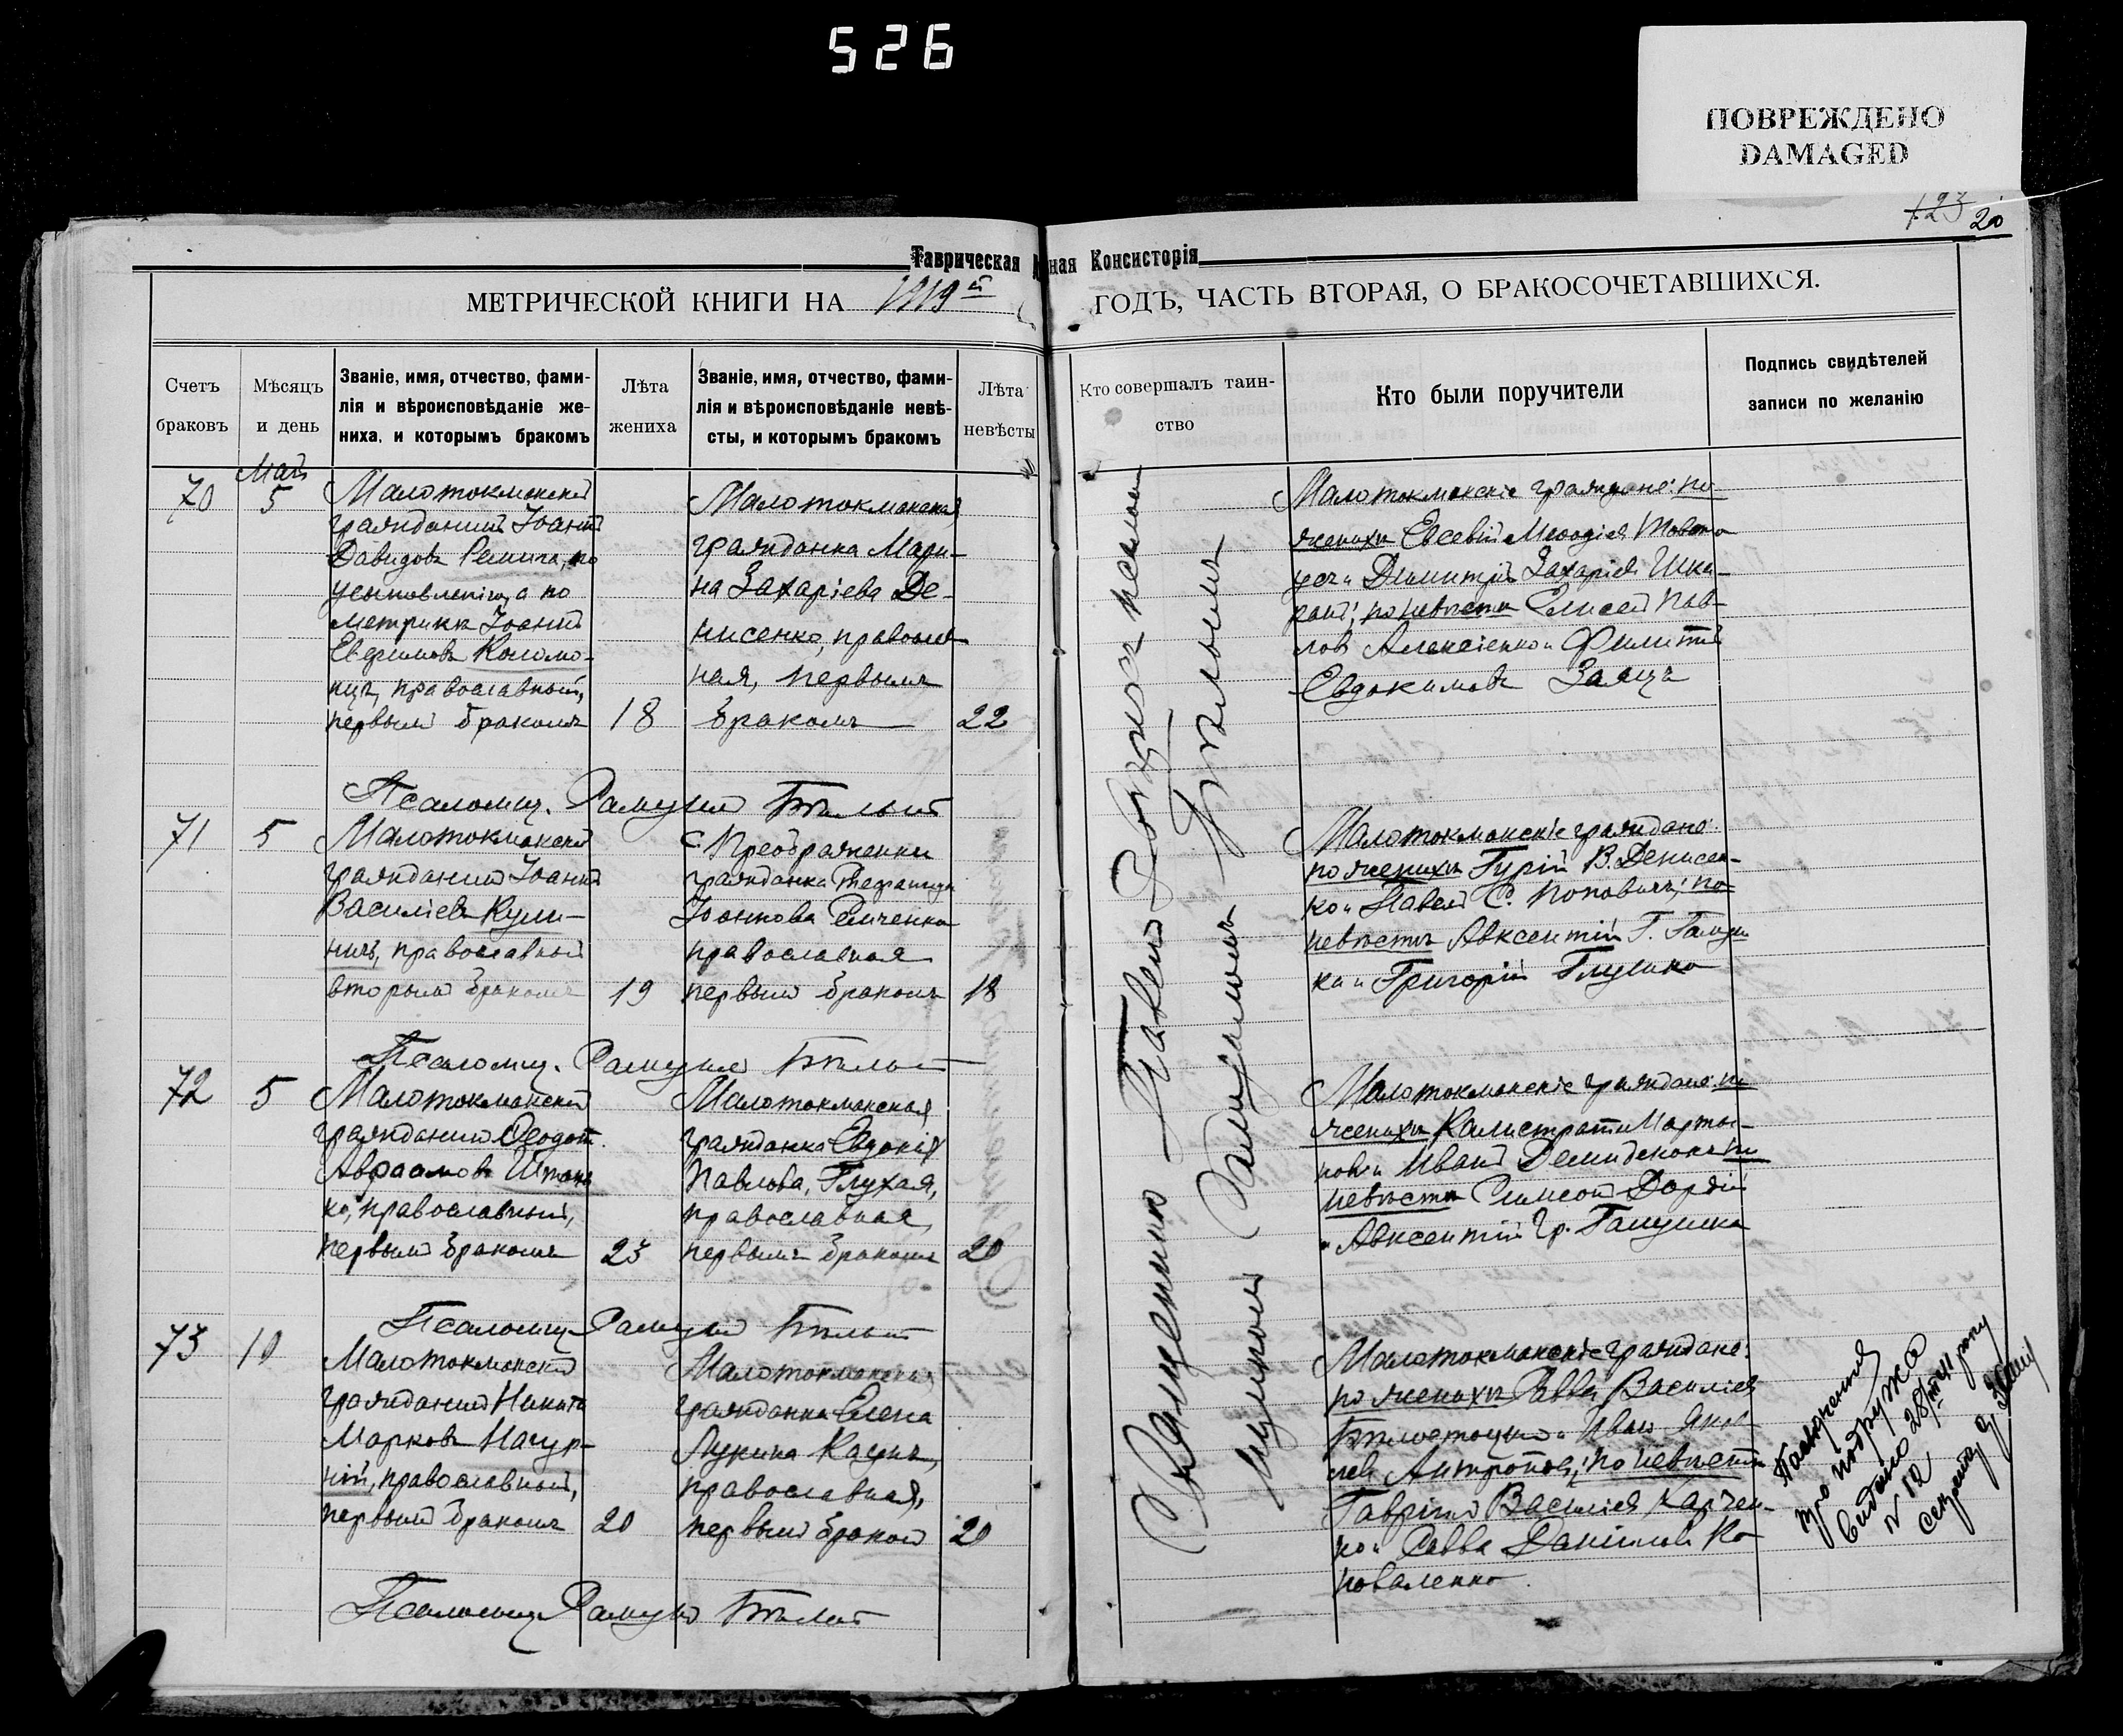 526
ПОВРЕЖДЕНО
DAMAGED
123 20
Таврическая
ная Консисторія
МЕТРИЧЕСКОЙ КНИГИ НА 1919й
ГОДЪ, ЧАСТЬ ВТОРАЯ, О БРАКОСОЧЕТАВШИХСЯ.
Счетъ
браковъ
Мѣсяцъ
и день
Званіе, имя, отчество, фами-
лія и вѣроисповѣданіе же-
ниха, и которымъ бракомъ
Лѣта
жениха
Званіе, имя, отчество, фами-
лія и вѣроисповѣданіе невѣ-
сты, и которымъ бракомъ
Лѣта
невѣсты
Кто совершалъ таин-
ство
Кто были поручители
Подпись свидѣтелей
записи по желанію
70
Май
5
Малотокмакскій
гражданинъ Іоаннъ
Давидовъ
а по
метрикѣ Іоаннъ
Евфимовъ Коломо-
ецъ, православный,
первымъ бракомъ
18
Малотокмакская
гражданка Мари-
на Захаріева Де-
нисенко, православ-
ная, первымъ
бракомъ
22
Малотокмакскіе граждане: по
женихѣ Евсевій Меѳодіев
Димитрій Захаріев Шка-
по невѣстѣ Елисей Пав-
лов Алексіенко и Филиппъ
Евдокимовъ Заяцъ
Псаломщ. Бѣлый
71
5
Малотокмакскій
гражданинъ Іоаннъ
Василіевъ Кули-
ничъ, православный
вторымъ бракомъ
19
с Преображенки
гражданка
Іоаннова
православная
первымъ бракомъ
18
Малотокмакскіе граждане:
по женихѣ Гурій В. Денисен-
ко и Павелъ С. Поповичъ; по
невѣстѣ Авксентій Г. Галуш
ка и Григорій Глушко
Псаломщ. Бѣлый
72
5
Малотокмакскій
гражданинъ Ѳеодот
Авраамовъ
ко, православный,
первымъ бракомъ
23
Малотокмакская
гражданка Евдокія
Павлова, Глухая,
православная,
первымъ бракомъ
20
Малотокмакскіе граждане: по
женихѣ Калистратъ Марты-
нов и Иванъ Демиденко; по
невѣстѣ
и Авксентій Гр. Галушка
Псаломщ. Бѣлый
73
10
Малотокмакскій
гражданинъ Никита
Марковъ
ній, православный,
первымъ бракомъ
20
Малотокмакская
гражданка Елена
Лукина Кацин,
православная,
первымъ бракомъ
20
Малотокмакскіе граждане:
по женихѣ Савва Василіев
и Иванъ Яков
лев Антропов; по невѣстѣ
Гавріилъ Василіев Харчен-
ко и Савва Даніиловъ Ко
новаленко
Псаломщ. Бѣлый
Священникъ Павелъ с псалом
щикомъ Бѣлымъ
про подружжа
видано 28
N 12